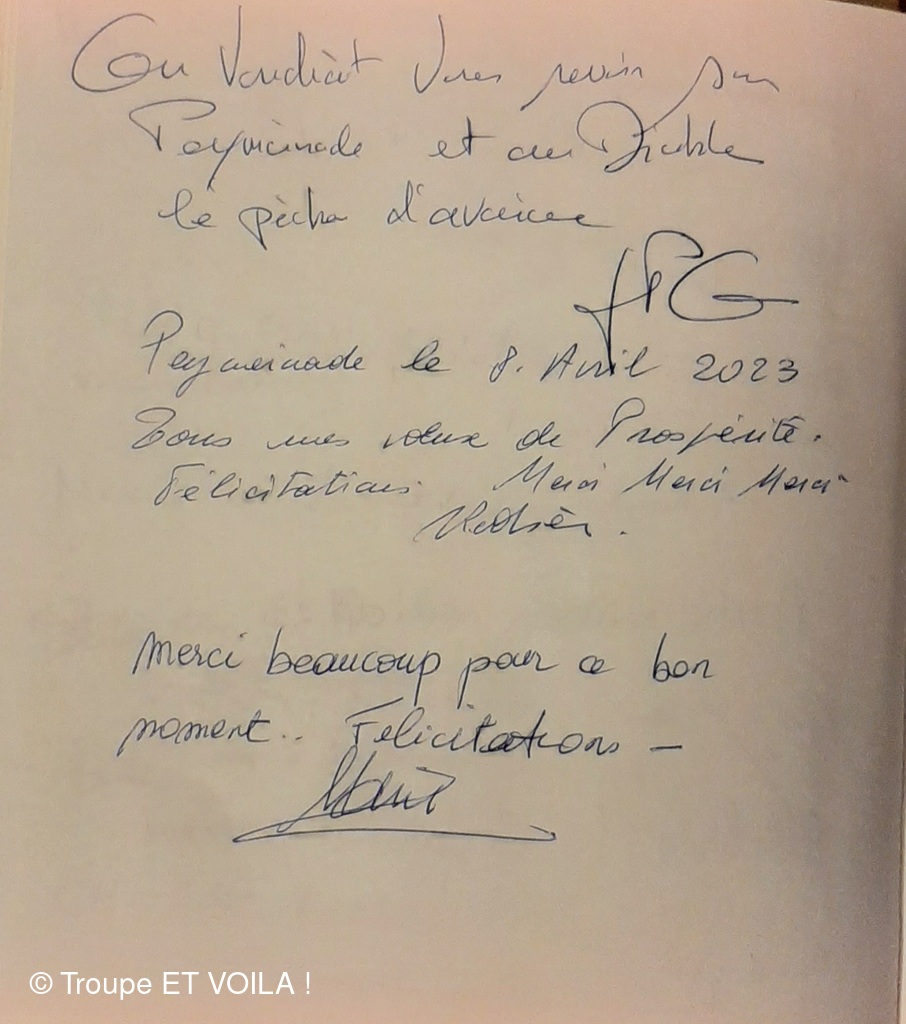 On Voudrait Vous revoir sur
Peymeinade et au Diable
le pêché d'avarice
JPG
Peymeinade le 8. Avril 2023
Tous mes vœux de Prospérité.
Félicitations Merci Merci Merci
Merci beaucoup pour ce bon
moment.. Félicitations –
© Troupe ET VOILA !